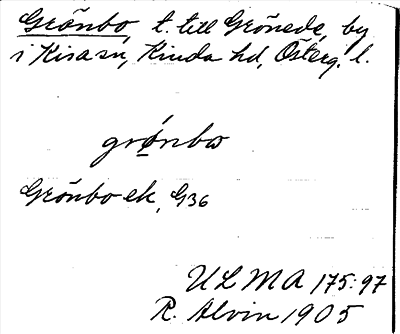 Grönbo, t. till Grönede, by
i Kisa sn, Kinda hd, Österg. l.
grönbω
Grönbo ek, G36
ULMA 175:97
R. Alvin 1905